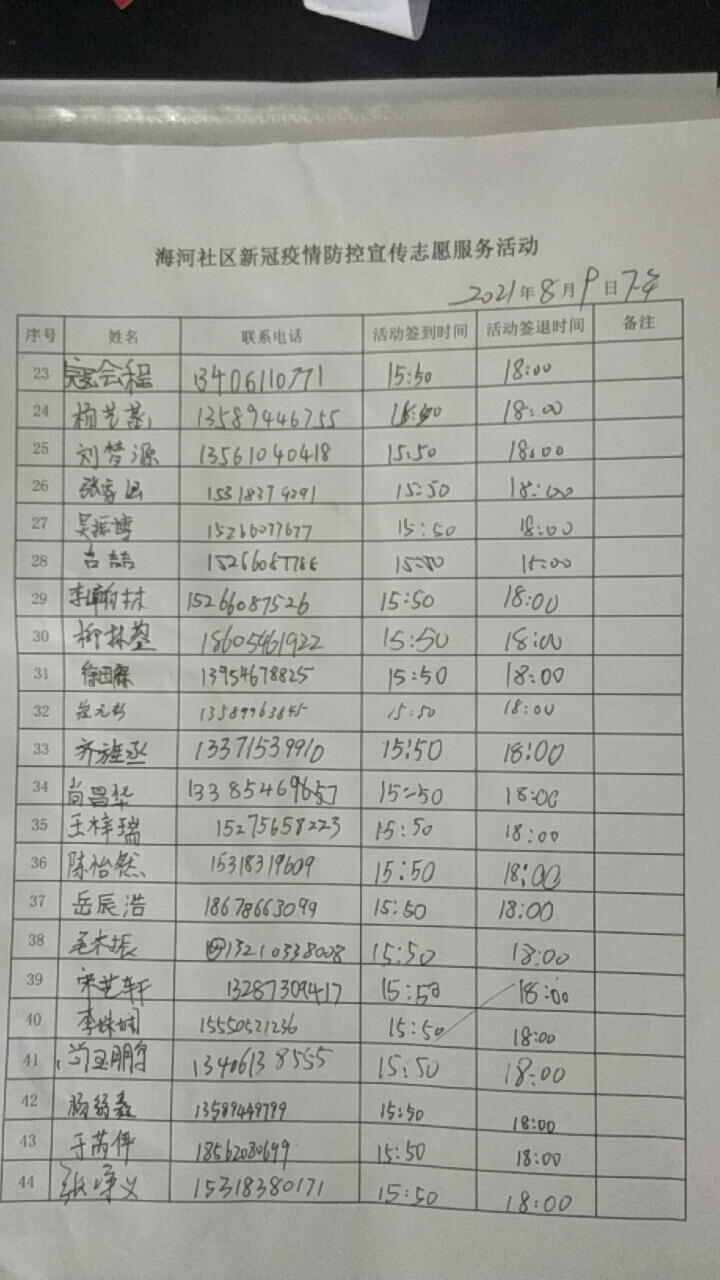 海河社区新冠疫情防控宣传志愿服务活动
2021年8月9日下午
序号 姓名 联系电话 活动签到时间 活动签退时间 备注
23 寇会程 13406110771 15:50 18:00
24 13589446755 18:00
25 刘梦源 13561040418 15:50 18:00
26 15318379291 15:50 18:00
27 吴振博 15266077677 15:50 18:00
28 吉喆 15:50
29 15266087526 15:50 18:00
30 柳林莹 18605461922 15:50 18:00
31 13954678825 15:50 18:00
32 15:50 18:00
33 齐旌丞 13371539910 15:50 18:00
34 尚昌华 15:50 18:00
35 王梓瑞 15275658223 15:50 18:00
36 陈怡然 15318319609 15:50 18:00
37 岳辰浩 18678663099 15:50 18:00
38 毛木振 13210338008 15:50 18:00
39 宋艺轩 13287309417 15:50 18:00
40 15550521236 15:50 18:00
41 13406138555 15:50 18:00
42 13589449799 15:50 18:00
43 于芮伊 18562030699 15:50 18:00
44 15318380171 15:50 18:00